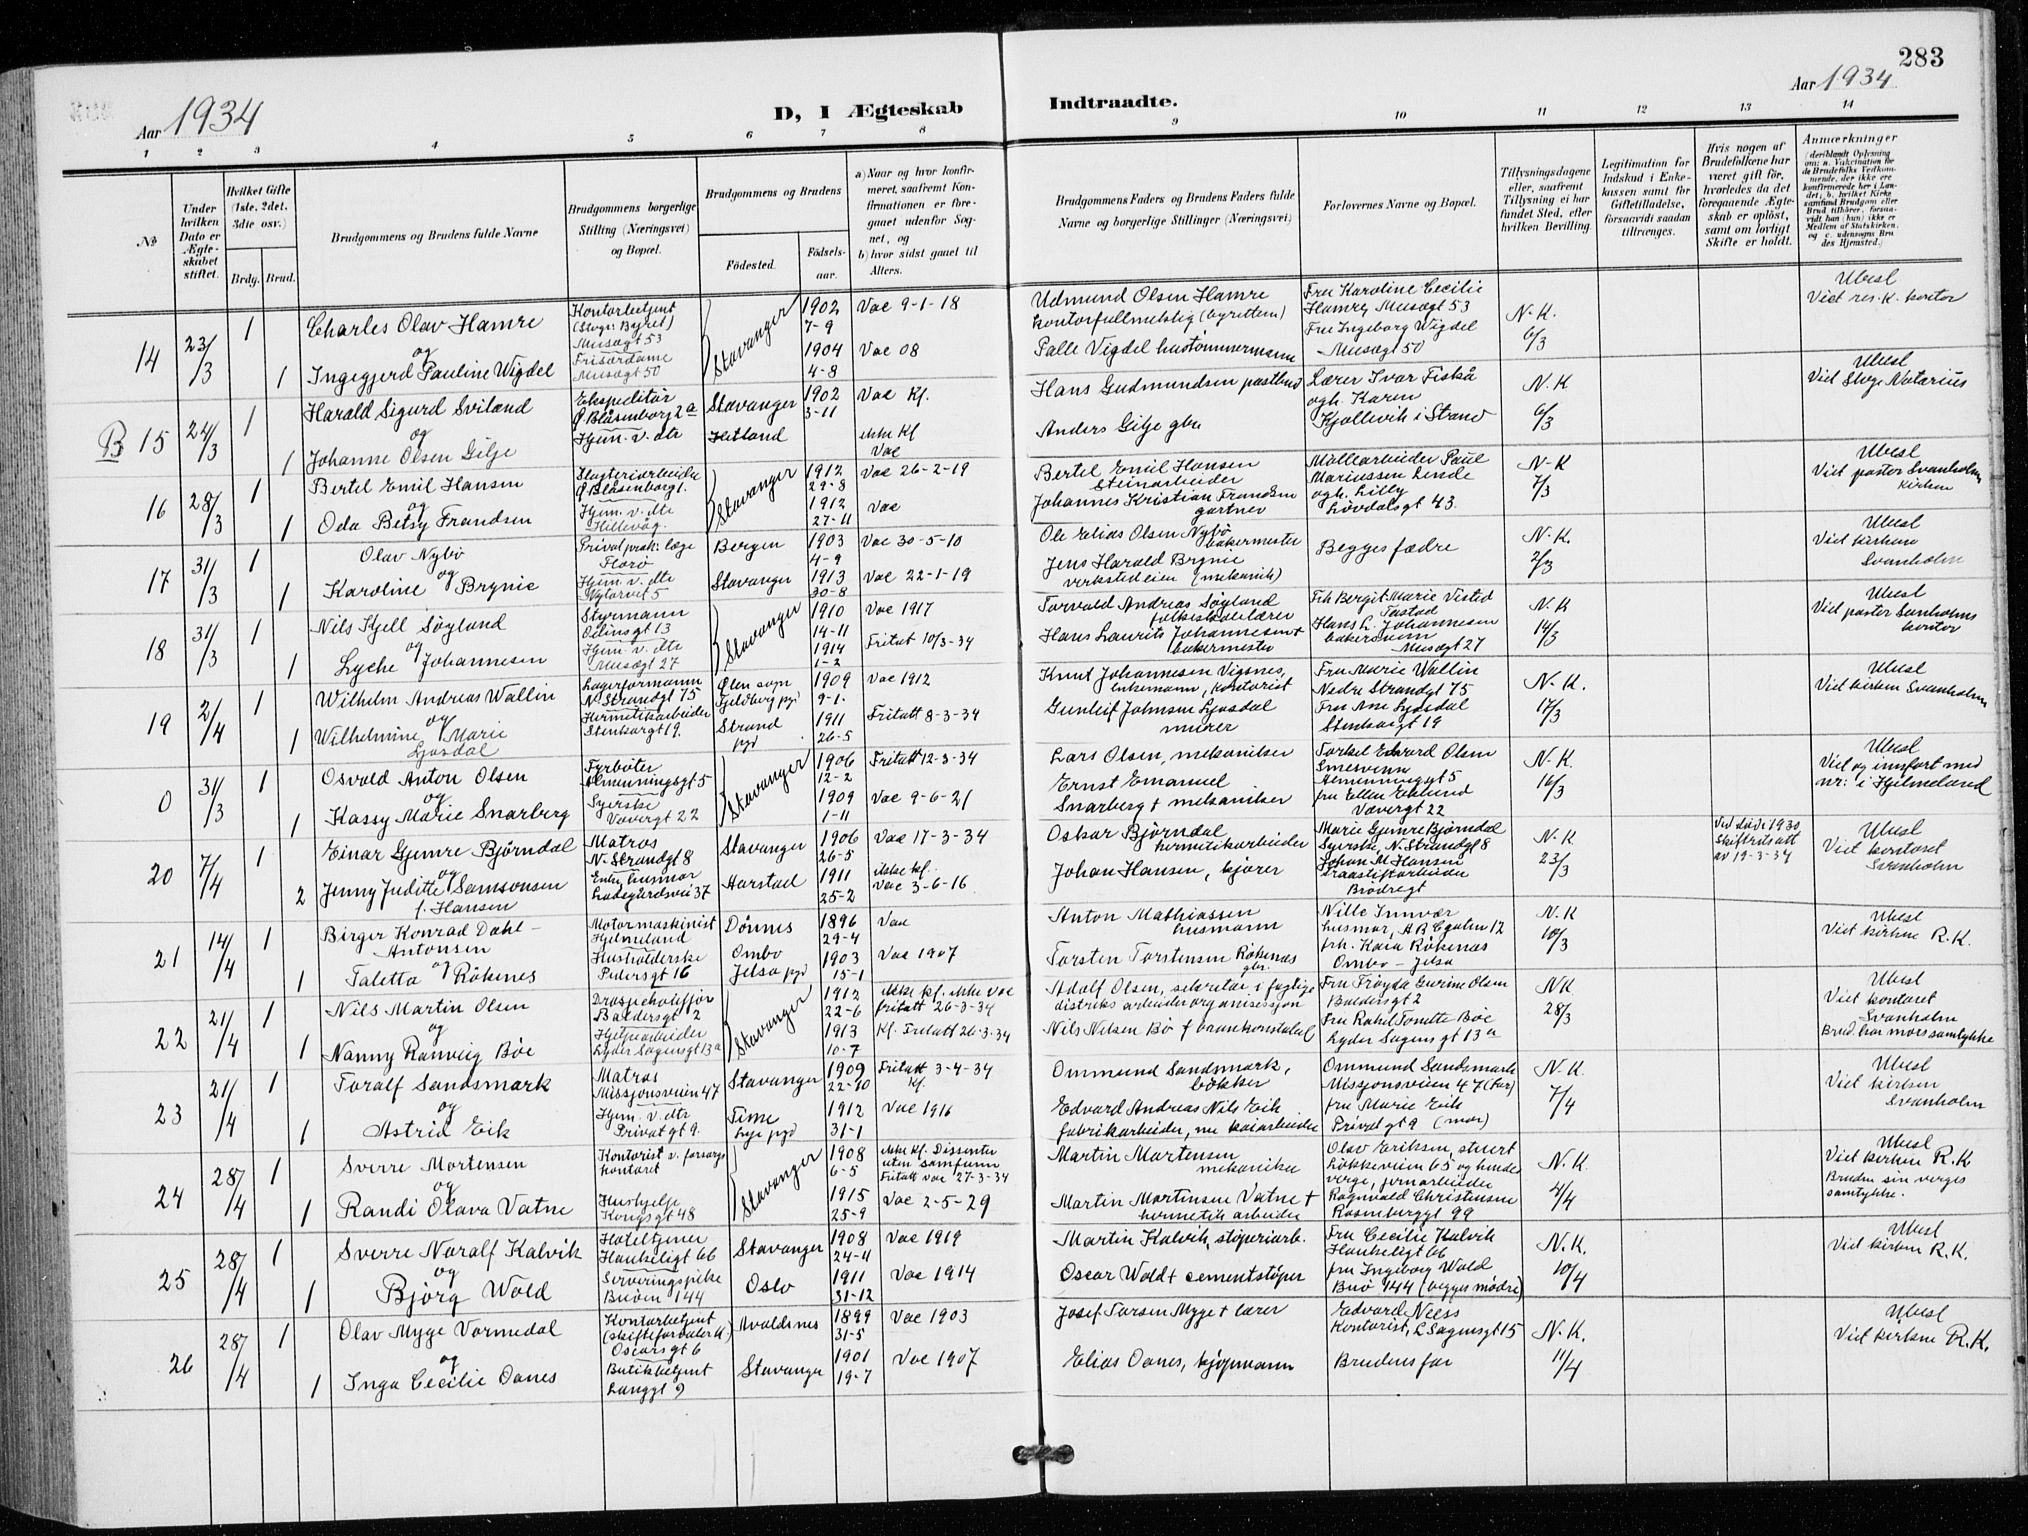 283
Aar 1934
Aar 1934
D, I Ægteskab
Indtraadte.
1 2 3 4 5 6 7 8
9 10 11 12 13 14
No
Under hvilken Dato er Ægteskabet stiftet.
Hvilket Gifte (1ste, 2det, 3die osv.)
Brdg. Brud.
Brudgommens og Brudens fulde Navne
Brudgommens borgerlige Stilling (Næringsvei) og Bopæl.
Brudgommens og Brudens
Födested.
Födselsaar.
a) Naar og hvor konfirmeret, saafremt Konfirmationen er foregaaet udenfor Sognet, og
b) hvor sidst gaaet til Alters.
Brudgommens Faders og Brudens Faders fulde Navne og borgerlige Stillinger (Næringsvei)
Forlovernes Navne og Bopæl.
Tillysningsdagene eller, saafremt Tillysning ei har fundet Sted, efter hvilken Bevilling.
Legitimation for Indskud i Enkekassen samt for Giftetilladelse, forsaavidt saadan tiltrænges.
Hvis nogen af Brudefolkene har været gift för, hvorledes da det foregaaende Ægteskab er oplöst, samt om lovligt Skifte er holdt.
Anmærkninger
(deriblandt Oplysning om: a. Vakcination for de Brudefolks Vedkommende, der ikke ere konfirmerede her i Landet; b. hvilket Kirkesamfund Brudgom eller Brud tilhörer, forsaavidt han (hun) ikke er Medlem af Statskirken, og c. udensogns Brudes Hjemsted.)
14 23/3 1 Charles Olav Hamre
og
1 Ingegjerd Pauline Wigdel
Kontorbetjent
(Stvgr. Byret)
Musægt 53
Frisørdame
Musægt 50
Stavanger
1902
7-9
1904
4-8
Vac 9-1-18
Vac 08
Udmund Olsen Hamre
kontorfullmektig (byretten)
Palle Vigdel hustømmermann
Fru Karoline Cecilie
Hamre, Musægt 53
Fru Ingeborg Wigdel
Musægt 50
N.K.
6/3
Ubesl
Viet res. k. kontor
B 15 24/3 1 Harald Sigurd Sviland
og
1 Johanne Olsen Gilje
Ekspeditør
Ø. Blåsenborg 2a
Hjem. v. dtr
Stavanger
Hetland
1902
3-11
Vac Kf.
ikke Kf
Vac
Hans Gudmundsen postbud
Anders Gilje gbr
Lærer Ivar Fiskå
ogh. Karen
Kjøllevik i Strand
N.K
6/3
Ubesl
Viet Stvgr Notarius
16 28/3 1 Bertel Emil Hansen
og
1 Oda Betsy Frandsen
Slagteriarbeider
Ø. Blåsenborg 1.
Hjem. v. dtr
Hillevåg.
Stavanger
1912
29-8
1912
27-11
Vac 26-2-19
Vac
Bertel Emil Hansen
Steinarbeider
Johannes Kristian Frandsen
gartner
Møllearbeider Paul
Mariussen Lende
ogh. Lilly
Løvdalsgt 43.
N-K
7/3
Ubesl
Viet pastor Svanholm
kirken
17 31/3 1 Olav Nybø
og
1 Karoline Brynie
Privat prak. læge
Florø
Hjem. v. dtr
Nytorvet 5
Bergen
Stavanger
1903
4-9
1913
30-8
Vac 30-5-10
Vac 22-1-19
Ole Elias Olsen Nybø
bakermester
Jens Harald Brynie
verkstedeier (mekanik)
Begges fædre
N.K.
2/3
Ubesl
Viet kirken
Svanholm
18 31/3 1 Nils Kjell Søyland
og
1 Lyche Johannesen
Styrmann
Odinsgt 13
Hjem. v. dtr
Musægt 27
Stavanger
1910
14-11
1914
1-2
Vac 1917
Fritat 10/3-34
Torvald Andreas Søyland
folkiskolelærer
Hans Laurits Johannesen +
bakermester
Frk Bergit Marie Vistad
Tastad
Hans L. Johannesen
bakersvenn
Musægt 27
N.K
14/3
Ubesl
Viet pastor Svanholms
kontor
19 2/4 1 Wilhelm Andreas Wallin
og
1 Wilhelmine Marie
Ljosdal
Lagerformann
N. Strandgt 75
Hermetikarbeider
Stenkargt 19.
Ølen sogn
Fjeldberg pgd
Strand
pgd
1909
9-1.
1911
26-5
Vac 1912
Fritatt 8-3-34
Knut Johannesen Vigsnes,
enkemann, kontorist
Gunleif Johnsen Ljosdal
murer
Fru Marie Wallin
Nedre Strandgt 75
Fru Ane Ljosdal
Stenkargt 19
N.K.
17/3
Ubesl
Viet kirken Svanholm
0 31/3 1 Osvald Anton Olsen
og
1 Kassy Marie Snarberg
Fyrbøter
Almenningsgt 5
Syerske
Vævergt 22
Stavanger
1906
12-2
1909
1-11
Fritatt 12-3-34
Vac 9-6-21
Lars Olsen, mekaniker
Ernst Emanuel
Snarberg + mekaniker
Torkel Edvard Olsen
Smesvenn
Almenningsgt 5
fru Ellen Eklund
Vævergt 22
N.K.
16/3
Ubesl
Viet og innført med
nr: i Hjelmeland
20 7/4 1 Einar Gjemre Bjørndal
og
2 Jenny Juditte Samsonsen
f. Hansen
Matros
N. Strandgt 8
Enke, husmor
Ladegårdsvei 37
Stavanger
Harstad
1906
26-5
1911
25-2
Vac 17-3-34
ikke kf.
Vac 3-6-16
Oskar Bjørndal
hermetikarbeider
Johan Hansen, kjører
Marie Gjemre Bjørndal
Syerske, N. Strandgt 8
Johan M Hansen
traastiftarbeider
Brødregt
N.K
23/3
Ved död 1930
Skifteutsatt
av 19-3-34
Ubesl
Viet kontoret
Svanholm
21 14/4 1 Birger Konrad Dahl-
Antonsen
og
1 Taletta Røkenes
Motormaskinist
Hjelmeland
Husholderske
Pedersgt 16
Dønnes
Ombo
Jelsa pgd
1896
29-4
1903
15-1
Vac
Vac 1907
Anton Mathiassen
husmann
Torsten Torstensen Røkenes
gbr.
Nille Innvær
husmor, A B C gaten 12
frk. Kaia Røkenes
Ombo - Jelsa
N.K
10/3
Ubesl
Viet kirkne R.K.
22 21/4 1 Nils Martin Olsen
og
1 Nanny Ranveig Bøe
Drosjechauffør
Baldersgt 2
Hjelpearbeider
Lyder Sagensgt 13a
Stavanger
1912
22-6
1913
10-7
ikke kf. ikke Vac
fritatt 26-3-34
Kf. Fritatt 26-3-34
Adolf Olsen, sekretær i faglige
distriks arbeiderorganisasjon
Nils Nilsen Bø f brankonstabel
Fru Frøyda Gurine Olsen
Baldersgt 2
Fru Rakel Tonette Bøe
Lyder Sagens gt 13a
NK
28/3
Ubesl
Viet kontoret
Svanholm
Brud. har mors samtykke
23 21/4 1 Toralf Sandsmark
og
1 Astrid Eik
Matros
Missjonsveien 47
Hjem. v. dtr
Privat gt 9.
Stavanger
Time
Lye pgd
1909
22-10
1912
31-1
Fritatt 3-4-34
Kf.
Vac 1916
Ommund Sandsmark,
bøkker
Edvard Andreas Nils Eik
fabrikarbeider, nu kaiarbeider
Ommund Sandsmark
Missjonsveien 47 (far)
fru Marie Eik
Privat gt 9 (mor)
N.K.
7/4
Ubesl
Viet kirken
Svanholm
24 28/4 1 Sverre Mortensen
og
1 Randi Olava Vatne
Kontorist v. forsorgs
kontoret
Hushjelp
Kongsgt 48
Stavanger
1908
6-5
1915
25-9
ikke Kf. Dissenter
uten samfunn
Fritatt vac 27-3-34
Vac 2-5-29
Martin Mortensen
mekaniker
Martin Mortensen Vatne +
hermetik arbeider
Olav Eriksen, stuert
Løkkeveien 65 og hendes
verge, jernarbeider
Ragnvald Christensen
Rosenberggt 99
N.K.
4/4
Ubesl
Viet kirken R.K
Bruden sin verges
samtykke.
25 28/4 1 Sverre Noralf Kalvik
og
1 Bjørg Wold
Hoteltjener
Haukeligt 66
Serveringspike
Buøen 144
Stavanger
Oslo
1908
24-4
1911
31-12
Vac 1919
Vac 1914
Martin Kalvik, støperiarb.
Oscar Wold + cementstøper
Fru Cecilie Kalvik
Haukeligt 66
fru Ingeborg Wold
Buø 144 (begges mødre)
N.K.
10/4
Ubesl
Viet kirken R.K.
26 28/4 1 Olav Myge Vormedal
og
1 Inga Cecilie Oanes
Kontorbetjent
(skifteforvalter k)
Oscarsgt 6
Butikkbetjent
Langgt 9
Avaldsnes
Stavanger
1899
31-5
1901
19-7
Vac 1903
Vac 1907
Josef Torsen Myge + lærer
Elias Oanes, kjøpmann
Edvard Neiss
Kontorist, L Sagensgt 15
Brudens far
N.K.
11/4
Ubesl
Viet kirkne R.K.